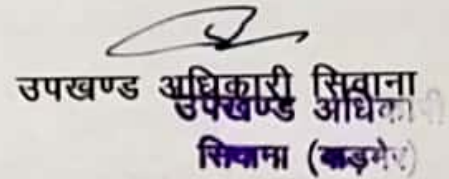 उपखण्ड अधिकारी सिवाना
उपखण्ड अधिकारी
सिवाना (बाड़मेर)